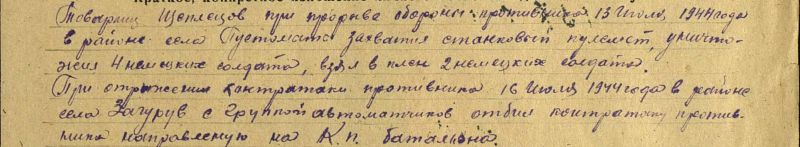 Товарищ Щеплецов при прорыве обороны противника 13 Июля 1944 года
в районе села Пустоматы захватил станковый пулемет, уничто-
жил 4 немецких солдата, взял в плен 2 немецких солдата.
При отражении контратаки противника 16 Июля 1944 года в районе
села Загурув с группой автоматчиков отбил контратаку против-
ника направленую на К.п. батальона.